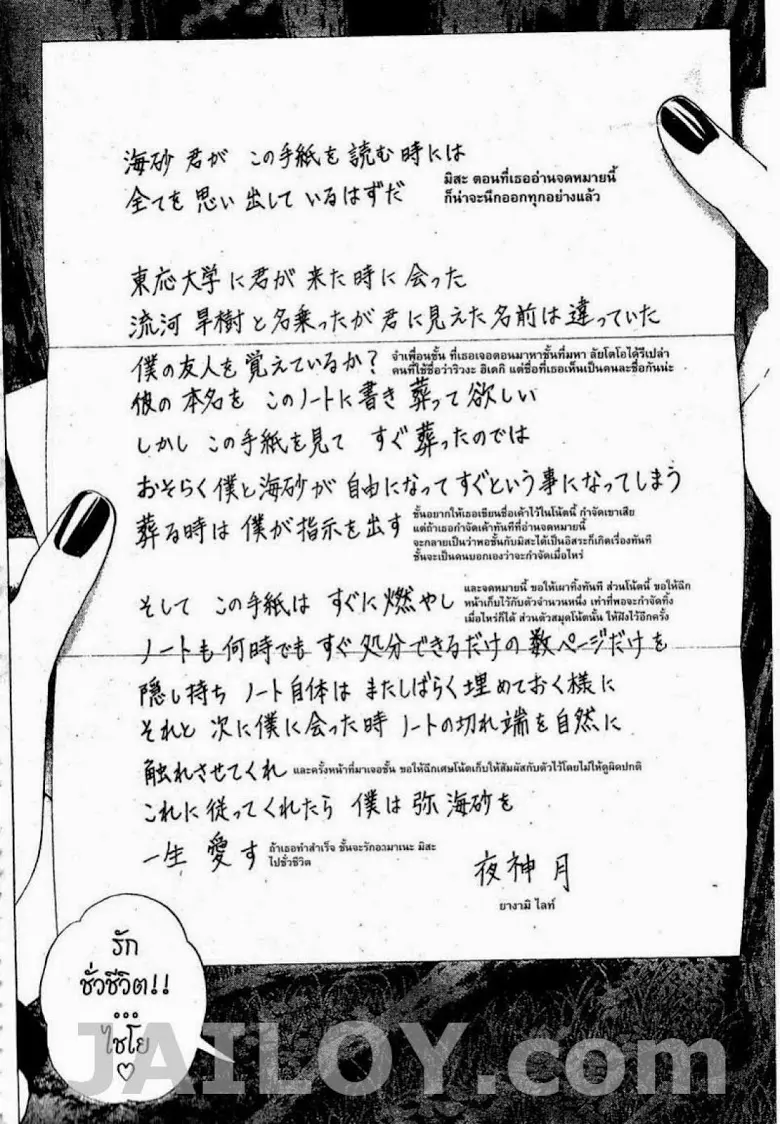 海砂 君が この手紙を読む時には
全てを思い出しているはずだ
มิสะ ตอนที่เธออ่านจดหมายนี้
ก็น่าจะนึกออกทุกอย่างแล้ว
東応大学に君が来た時に会った
流河旱樹と名乗ったが君に見えた名前は違っていた
僕の友人を覚えているか?
จำเพื่อนชั้น ที่เธอเจอตอนมาหาชั้นที่มหา'ลัยโตโอได้รึเปล่า
คนที่ใช้ชื่อว่าริวงะ ฮิเดกิ แต่ชื่อที่เธอเห็นเป็นคนละชื่อกันน่ะ
彼の本名を このノートに書き葬って欲しい
しかし この手紙を見て すぐ葬ったのでは
おそらく僕と海砂が自由になってすぐという事になってしまう
葬る時は僕が指示を出す
ชั้นอยากให้เธอเขียนชื่อเค้าไว้ในโน้ตนี้ กำจัดเขาเสีย
แต่ถ้าเธอกำจัดเค้าทันทีที่อ่านจดหมายนี้
จะกลายเป็นว่าพอชั้นกับมิสะได้เป็นอิสระก็เกิดเรื่องทันที
ชั้นจะเป็นคนบอกเองว่าจะกำจัดเมื่อไหร่
そして この手紙は すぐに燃やし
และจดหมายนี้ ขอให้เผาทิ้งทันที ส่วนโน้ตนี้ ขอให้ฉีก
หน้าเก็บไว้กับตัวจำนวนหนึ่ง เท่าที่พอจะกำจัดทิ้ง
เมื่อไหร่ก็ได้ ส่วนตัวสมุดโน้ตนั้น ให้ฝังไว้อีกครั้ง
ノートも何時でもすぐ処分できるだけの数ページだけを
隠し持ち ノート自体は またしばらく埋めておく様に
それと 次に僕に会った時 ノートの切れ端を自然に
触れさせてくれ
และครั้งหน้าที่มาเจอชั้น ขอให้ฉีกเศษโน้ตเก็บให้สัมผัสกับตัวไว้โดยไม่ให้ดูผิดปกติ
これに従ってくれたら 僕は 弥 海砂を
一生 愛す
ถ้าเธอทำสำเร็จ ชั้นจะรักอามาเนะ มิสะ
ไปชั่วชีวิต
夜神 月
ยางามิ ไลท์
รัก
ชั่วชีวิต!!
...
ไชโย
♡
JAILOY.com